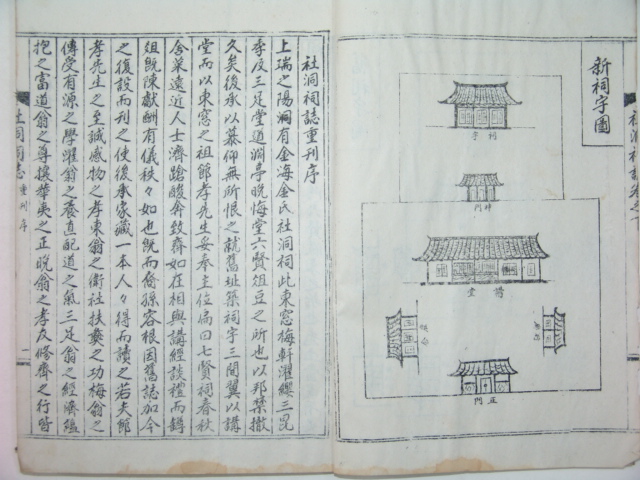 新祠宇圖
祠宇
神門
講堂
正門
社洞祠誌重刊序
上瑞之陽洞有金海金氏社洞祠此東窓梅軒濯纓三昆
季及三足堂道淵亭晩悔堂六賢俎豆之所也以邦禁撤
久矣後承以慕仰無所恨之就舊址築祠宇三間翼以講
堂而以東窓之祖節孝先生妥奉主位扁曰七賢祠春秋
舍菜遠近人士濟蹌酸奔致齊如在相與講經談禮而歸
俎旣陳獻酬有儀秩々如也旣而裔孫容根因舊誌加今
之復設而刊之使後承家藏一本人々得而讀之若夫節
孝先生之至誠感物之孝東翁之衛社扶奠之功梅翁之
傳受有源之學濯翁之養直配道之氣三足翁之經濟蘊
抱之富道翁之尊攘華夷之正晩翁之孝友修齊之行皆
社洞祠誌 重刊序 一